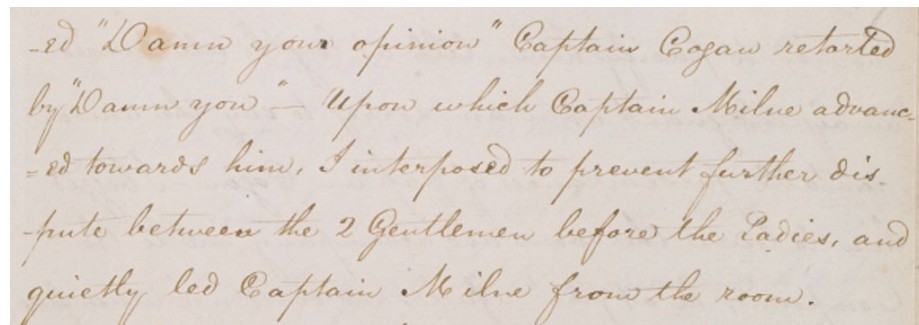 -ed "Damn your opinion" Captain Cogan retorted
by "Damn you" - Upon which Captain Milne advanc-
=ed towards him, I interposed to prevent further dis-
-pute between the 2 Gentlemen before the Ladies, and
quietly led Captain Milne from the room.